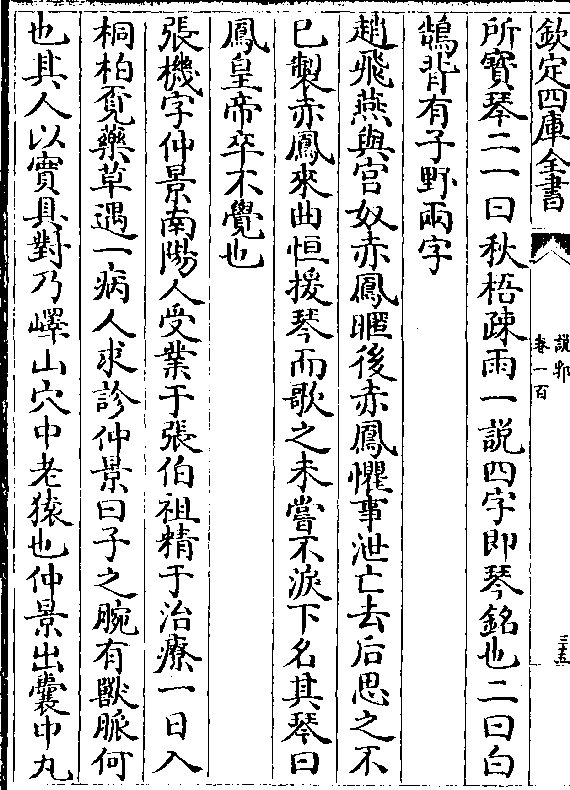 欽定四庫全書
說郛
卷一百
三十五
所寳琴二一曰秋梧疎雨一説四字即琴銘也二曰白
鵠背有子野兩字
趙飛燕與宫奴赤鳳暱後赤鳳懼事泄亡去后思之不
已製赤鳳來曲恒援琴而歌之未嘗不淚下名其琴曰
鳳皇帝卒不覺也
張機字仲景南陽人受業于張伯祖精于治療一日入
桐柏覓藥草遇一病人求診仲景曰子之腕有獸脈何
也其人以實具對乃嶧山穴中老猿也仲景出囊中丸